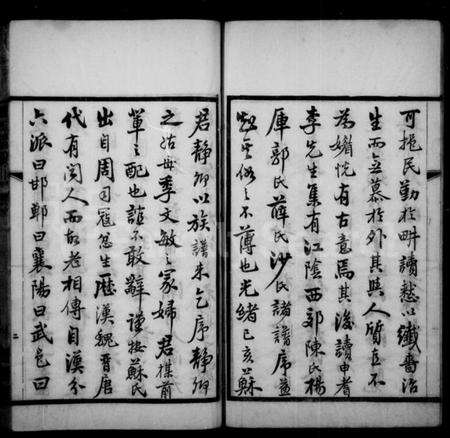 可抵民勤於畊讀慤以纖嗇治
生而立慕於外其與人質直不
為媚悅有古意焉其後讀申耆
李先生集有江陰西郭陳氏楊
厙郭氏薛氏沙氏諸譜序益
不薄也光緒己亥蘇
君静卿以族譜来乞序静卿
之姑母季文敏之冢婦君楳前
輩之配也誼不敢辭謹按蘇氏
出自周司寇忿生歷漢魏晉唐
代有聞人而故老相傳自漢分
六派曰邯鄲曰襄陽曰武邑曰
二